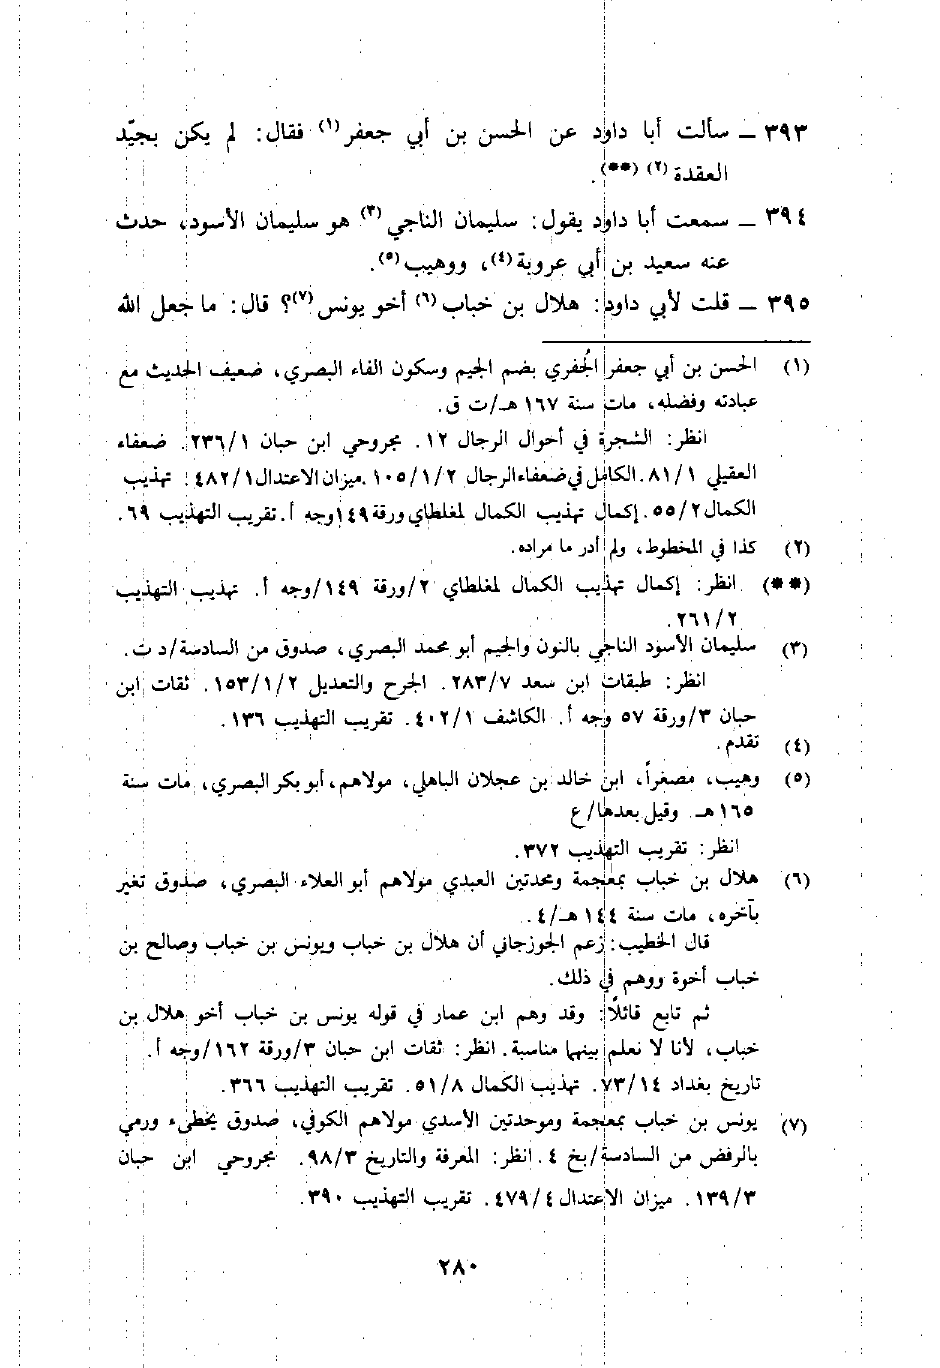 ٣٩٣ ـ سألت أبا داود عن الحسن بن أبي جعفر (١) فقال: لم يكن بجيّد
العقدة (٢) (**).
٣٩٤ ـ سمعت أبا داود يقول: سليمان الناجي (٣) هو سليمان الأسود، حدث
عنه سعيد بن أبي عروبة (٤)، ووهيب (٥).
٣٩٥ ـ قلت لأبي داود: هلال بن خباب (٦) أخو يونس (٧)؟ قال: ما جعل الله
(١) الحسن بن أبي جعفر الجُفري بضم الجيم وسكون الفاء البصري، ضعيف الحديث مع
عبادته وفضله، مات سنة ١٦٧ هـ/ت ق.
انظر: الشجرة في أحوال الرجال ١٢. مجروحي ابن حبان ٢٣٦/١. ضعفاء
العقيلي ٨١/١. الكامل في ضعفاء الرجال ١٠٥/١/٢. ميزان الاعتدال ٤٨٢/١: تهذيب
الكمال ٥٥/٢. إكمال تهذيب الكمال لمغلطاي ورقة ١٤٩ وجه أ. تقريب التهذيب ٦٩.
(٢) كذا في المخطوط، ولم أدر ما مراده.
(**) انظر: إكمال تهذيب الكمال لمغلطاي ٢/ورقة ١٤٩/وجه أ. تهذيب التهذيب
٢٦١/٢.
(٣) سليمان الأسود الناجي بالنون والجيم أبو محمد البصري، صدوق من السادسة/د ت.
انظر: طبقات ابن سعد ٢٨٣/٧. الجرح والتعديل ١٥٣/١/٢. ثقات ابن
حبان ٣/ورقة ٥٧ وجه أ. الكاشف ٤٠٢/١. تقريب التهذيب ١٣٦.
(٤) تقدم.
(٥) وهيب، مصغراً، ابن خالد بن عجلان الباهلي، مولاهم، أبو بكر البصري، مات سنة
١٦٥ هـ وقيل بعدها/ع
انظر: تقريب التهذيب ٣٧٢.
(٦) هلال بن خباب بمعجمة ومحدتين العبدي مولاهم أبو العلاء البصري، صدوق تغير
بآخره، مات سنة ١٤٤ هـ/٤.
قال الخطيب: زعم الجوزجاني أن هلال بن خباب ويونس بن خباب وصالح بن
خباب أخوة ووهم في ذلك.
ثم تابع قائلًا: وقد وهم ابن عمار في قوله يونس بن خباب أخو هلال بن
خباب، لأنا لا نعلم بينهما مناسبة. انظر: ثقات ابن حبان ٣/ورقة ١٦٢/وجه أ.
تاريخ بغداد ٧٣/١٤. تهذيب الكمال ٥١/٨. تقريب التهذيب ٣٦٦.
(٧) يونس بن خباب بمعجمة وموحدتين الأسدي مولاهم الكوفي، صدوق يخطىء ورمي
بالرفض من السادسة/بخ ٤. انظر: المعرفة والتاريخ ٩٨/٣. مجروحي ابن حبان
١٣٩/٣. ميزان الاعتدال ٤٧٩/٤. تقريب التهذيب ٣٩٠.
٢٨٠